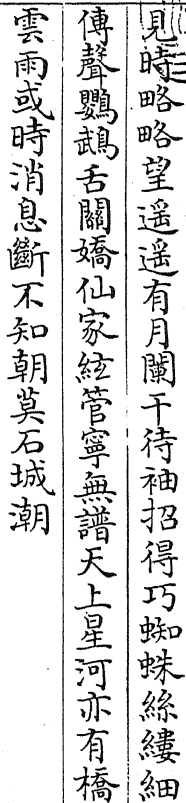 見時略略望遥遥有月闌干待袖招得巧蜘蛛絲縷細
傳聲鸚鵡舌關嬌仙家絃管寧無譜天上星河亦有橋
雲雨或時消息斷不知朝莫石城潮